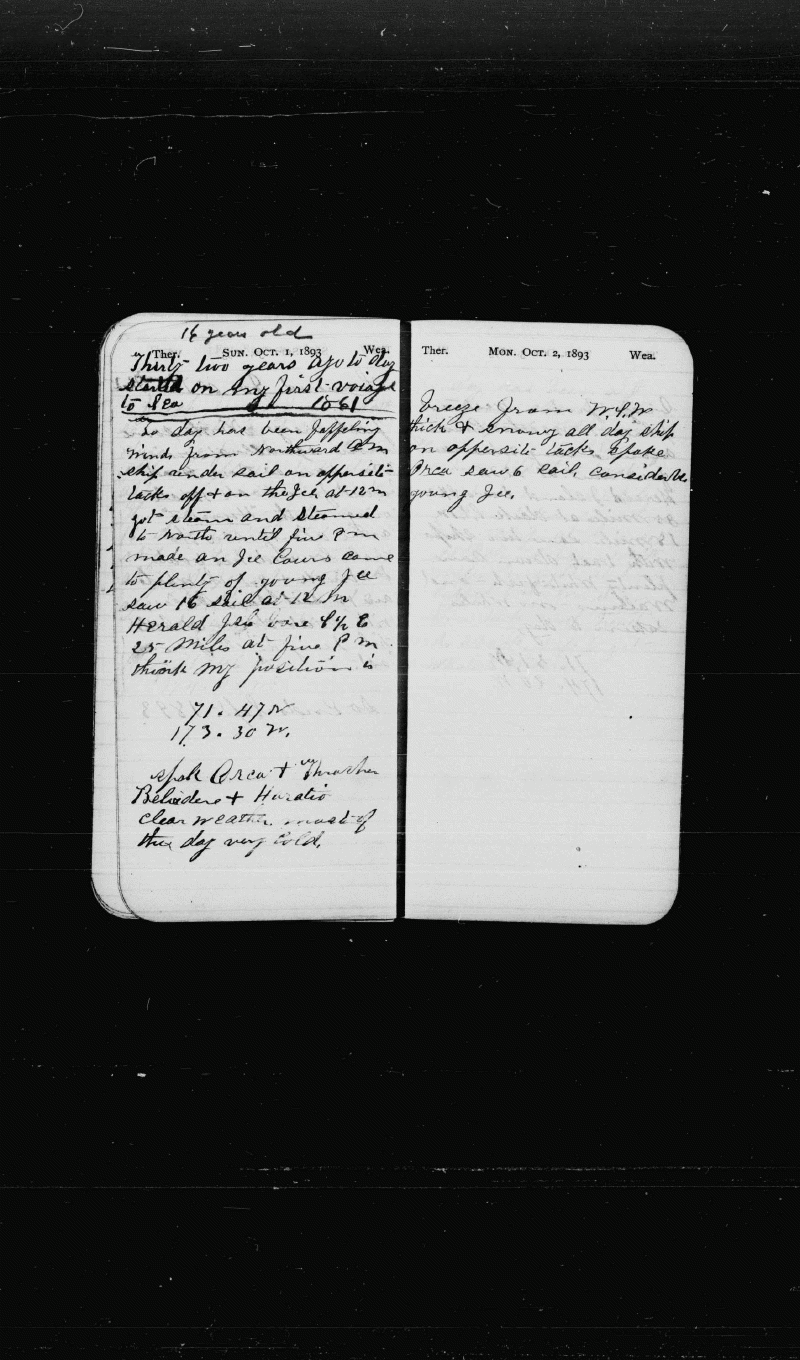 16 years old
Ther. SUN. OCT. 1, 1893 Wea.
Thirty two years ago to day
started on my first voiage
to Sea 1861
To day has been
winds from Northward
ship under sail on oppersite
tacks off + on the Ice at 12 m
got steam and steamed
to North until five P m
made an Ice Cours came
to plenty of young Ice
saw 16 sail at 12 m
Herald Isle bore
25 Miles at five P m
think my position is
71. 47 N
173. 30 W.
spok Orca + Thrasher
Belvedere + Horatio
clear weather most of
the day very Cold.
Ther. MON. OCT. 2, 1893 Wea.
breeze from W.S.W
thick + snowy all day ship
on oppersite tacks Spoke
Orca saw 6 sail, considerble
young Ice.